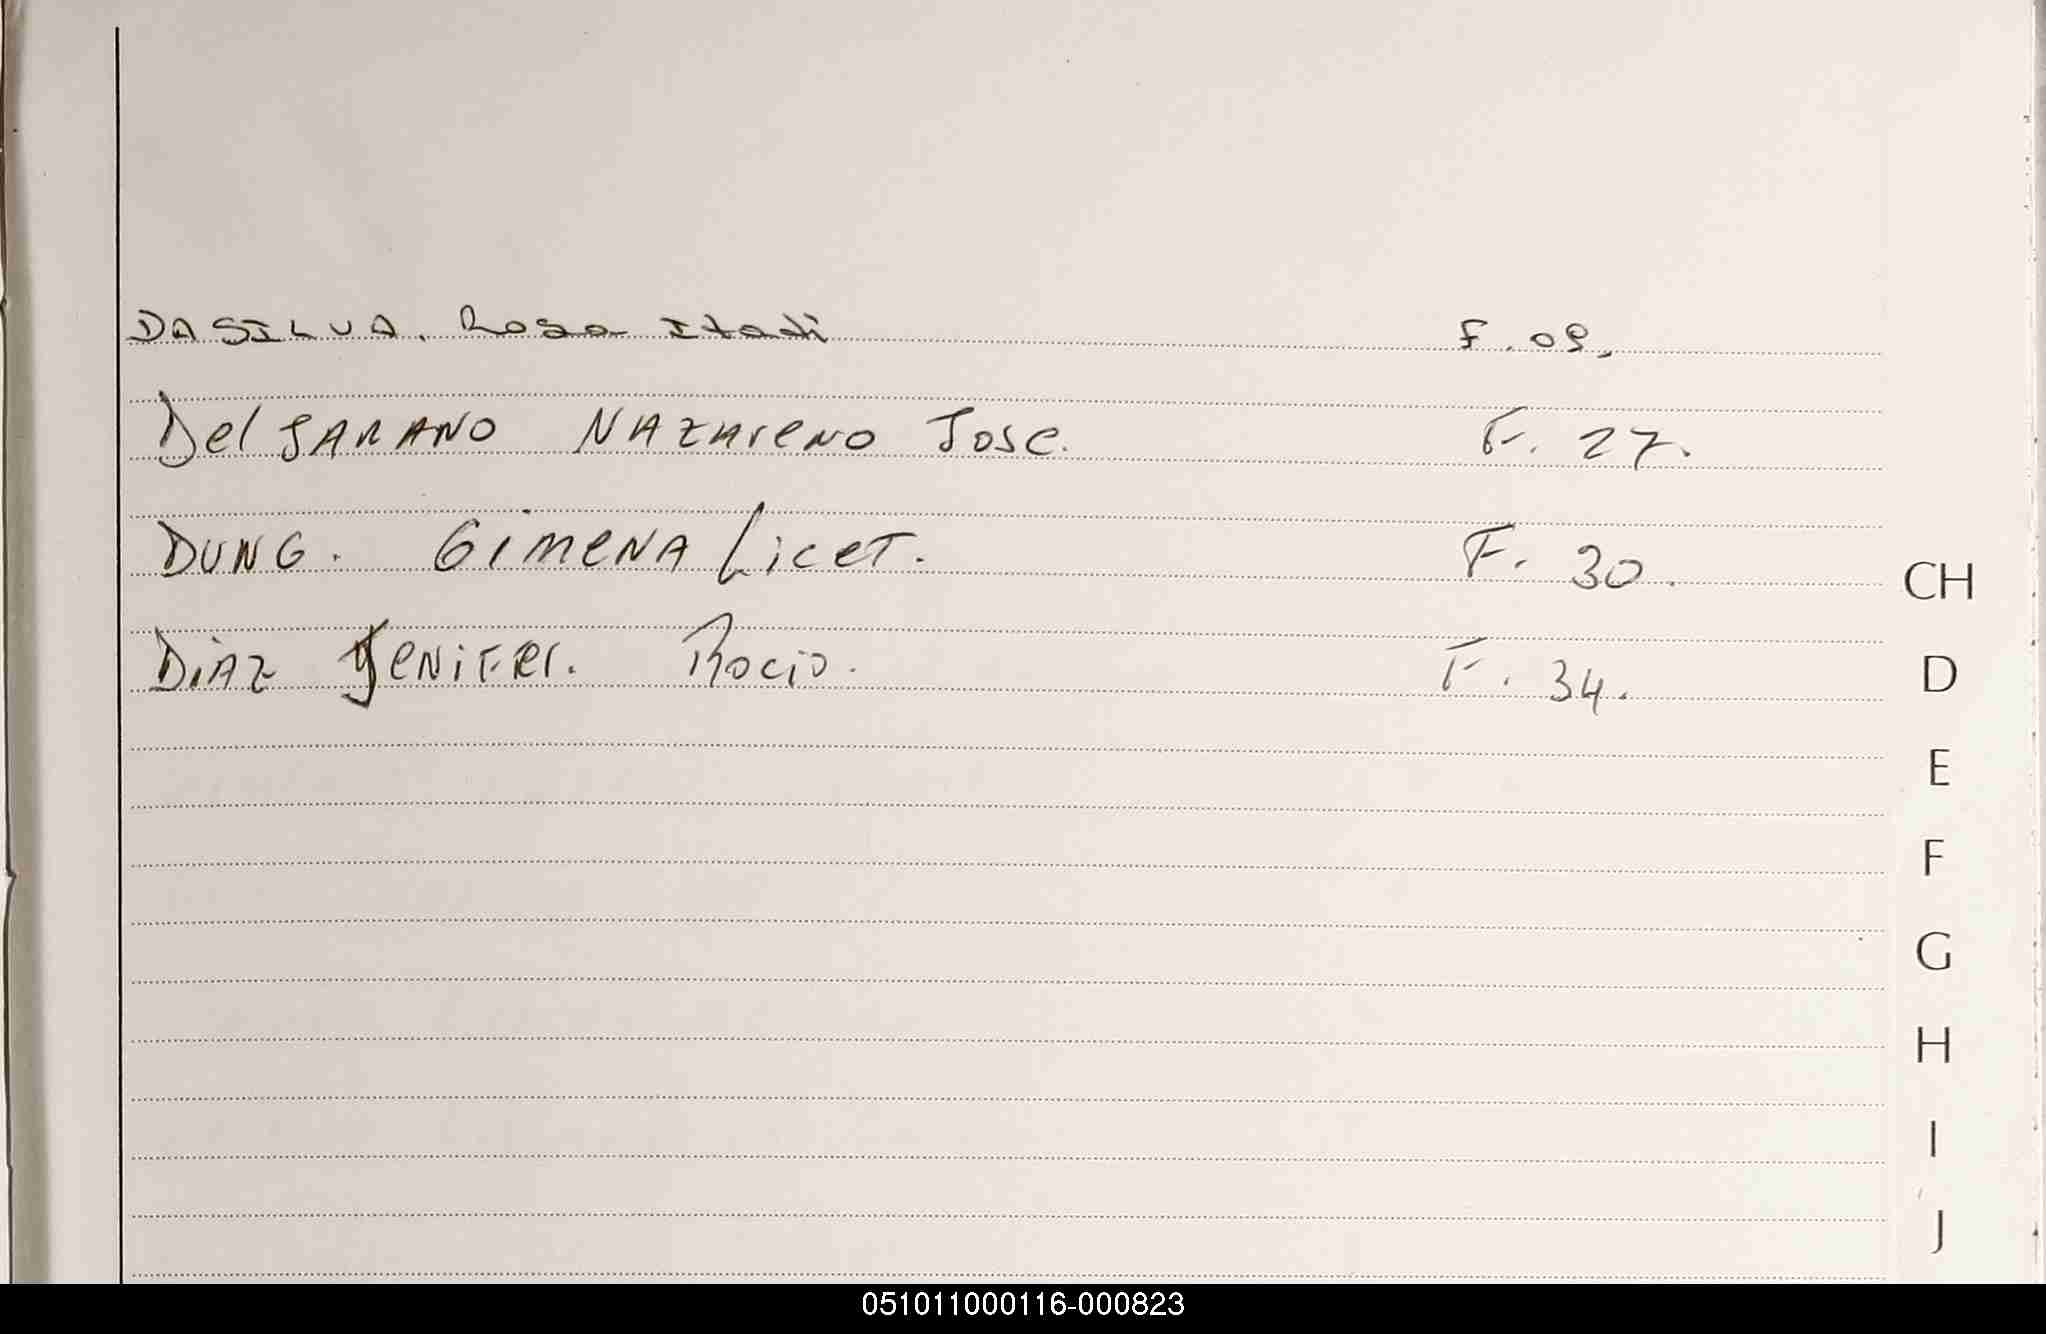 DASILVA. Rosa Itatí F. 09.
Del SARANO NAZAreNO Jose. F. 27.
DUNG. GiMeNA Licet. F. 30.
DiAz JeNiFer. Rocio. F. 34.
CH
D
E
F
G
H
I
J
051011000116-000823